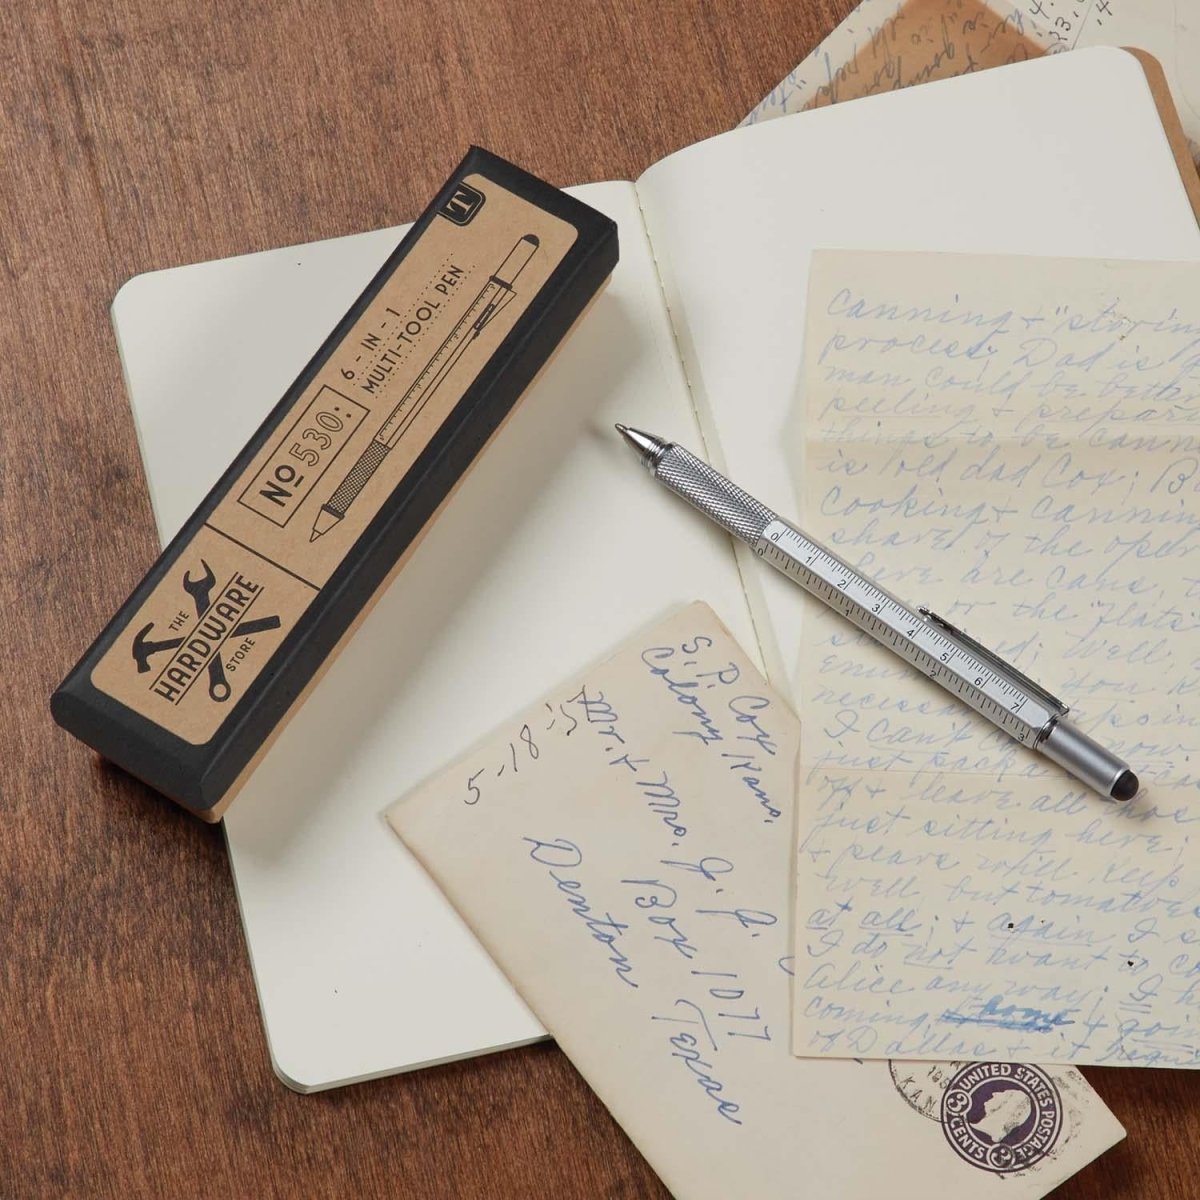 T
6-IN-1
MULTI-TOOL PEN
No 530:
THE
HARDWARE
STORE
0 1 2 3 4 5 6 7
0 1 2 3
S. P. Cox
Colony Kans.
5-18-5
Mr. + Mrs. J. P.
Box 1077
Denton Texas
UNITED STATES POSTAGE
3 CENTS 3
KAN
canning + "storin
process; Dad is
man could be better
peeling + prepar
things to be cann
is old dad Cox; B
cooking + cannin
share of the oper
here are cans,
or the "flats
Well,
You k
necess
I can't now
just pack
off + leave all
just sitting here;
+ pears will keep
well but tomatoes
at all; + again I s
I do not want to c
Alice any way; I h
coming home + goin
of Dallas + it requi